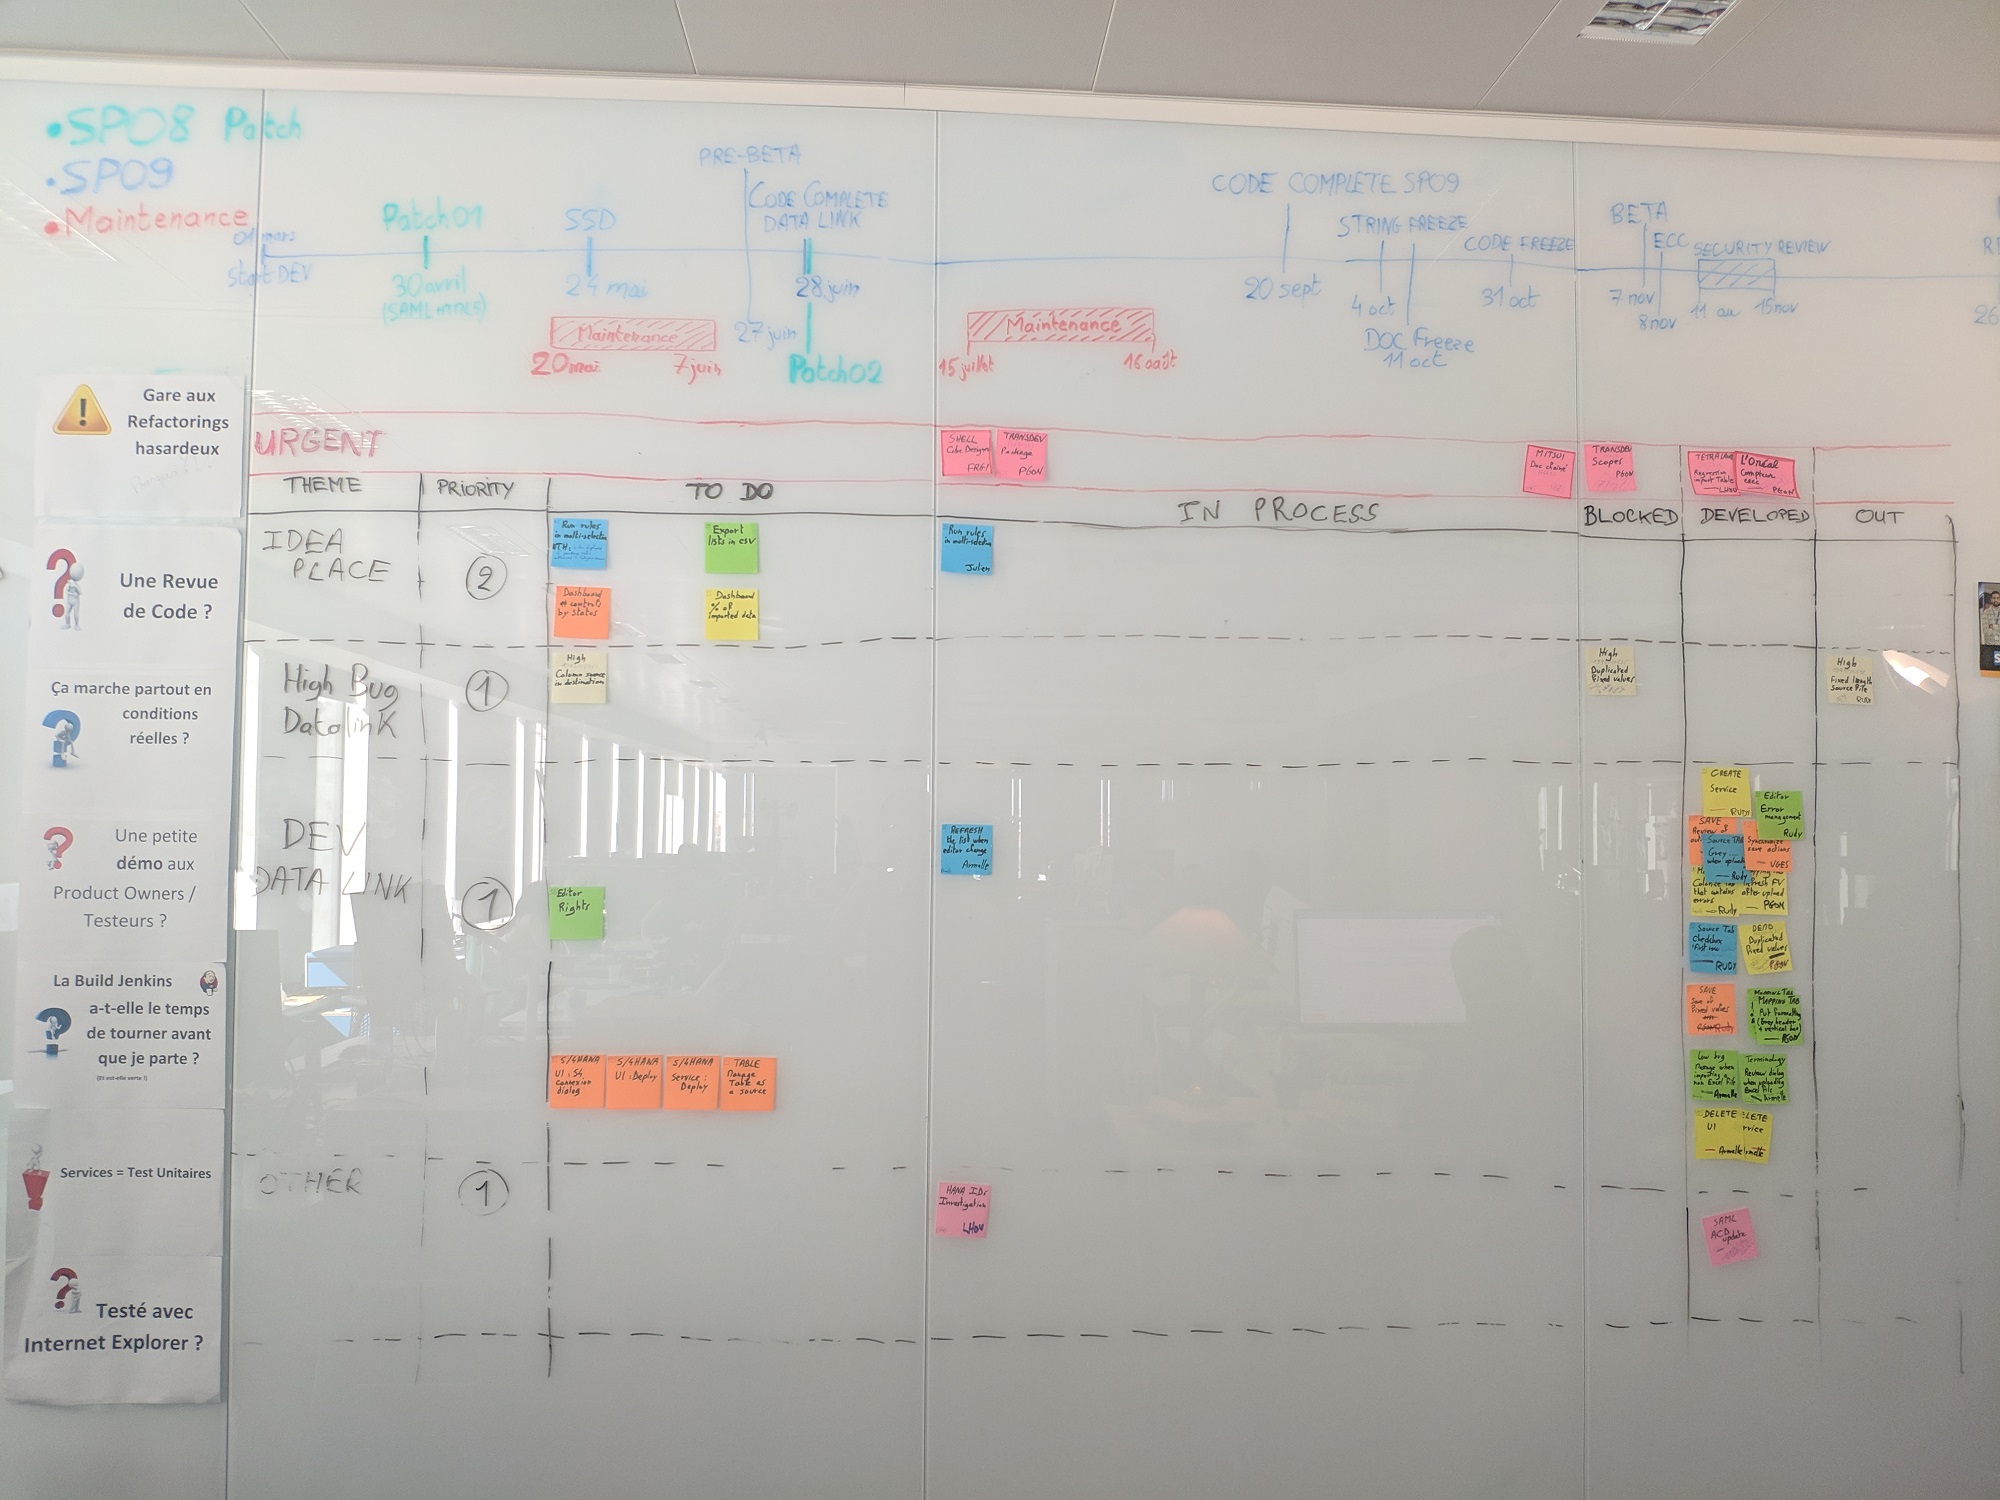 •SP08 Patch
•SP09
•Maintenance
01 mars
start DEV
Patch01
30 avril
SSD
24 mai
PRE-BETA
27 juin
CODE COMPLETE
DATA LINK
28 juin
Patch02
Maintenance
20 mai
7 juin
Maintenance
15 juillet
16 août
CODE COMPLETE SP09
20 sept
STRING FREEZE
4 oct
DOC Freeze
11 oct
CODE FREEZE
31 oct
BETA
7 nov
ECC
8 nov
SECURITY REVIEW
11 au 15 nov
26
Gare aux
Refactorings
hasardeux
Une Revue
de Code ?
Ça marche partout en
conditions
réelles ?
Une petite
démo aux
Product Owners /
Testeurs ?
La Build Jenkins
a-t-elle le temps
de tourner avant
que je parte ?
(Et est-elle verte ?)
Services = Test Unitaires
Testé avec
Internet Explorer ?
URGENT
SHELL
Cube Designer
FRGI
TRANSDEV
Package
PGON
MITSUI
Doc
TRANSDEV
Scopes
PGON
Regression
import Table
L'Oréal
Compteur
exec
PGON
THEME
PRIORITY
TO DO
IN PROCESS
BLOCKED
DEVELOPED
OUT
IDEA
PLACE
2
Run rules
in multi-selection
Export
lists in csv
Dashboard
by status
Dashboard
% of
imported data
Run rules
in multi-selection
Julien
High Bug
Datalink
1
High
Column source
in destination
High
Duplicated
Fixed values
High
Fixed length
Source File
Rudy
DEV
DATA LINK
1
Editor
Rights
S/4HANA
UI : S4
Connexion
dialog
S/4HANA
UI : Deploy
S/4HANA
Service :
Deploy
TABLE
Manage
Table as
a source
REFRESH
the list when
editor change
Armelle
CREATE
Service
RUDY
Editor
Error
management
Rudy
SAVE
Review of
SOURCE TAB
Grey
when upload
Rudy
Synchronize
save actions
VGES
that contains
errors
Rudy
after upload
PGON
Source Tab
Checkbox
First row
RUDY
DEMO
Duplicated
Fixed values
PGON
SAVE
Fixed values
MAPPING TAB
Put formatting
(Grey header
+ vertical bar)
PGON
Low bug
Message when
importing a
non Excel File
Armelle
Terminology
Review dialog
when uploading
Excel file
Armelle
DELETE
UI
Armelle
OTHER
1
HANA IDs
Investigation
LHOU
SAML
ACD
update